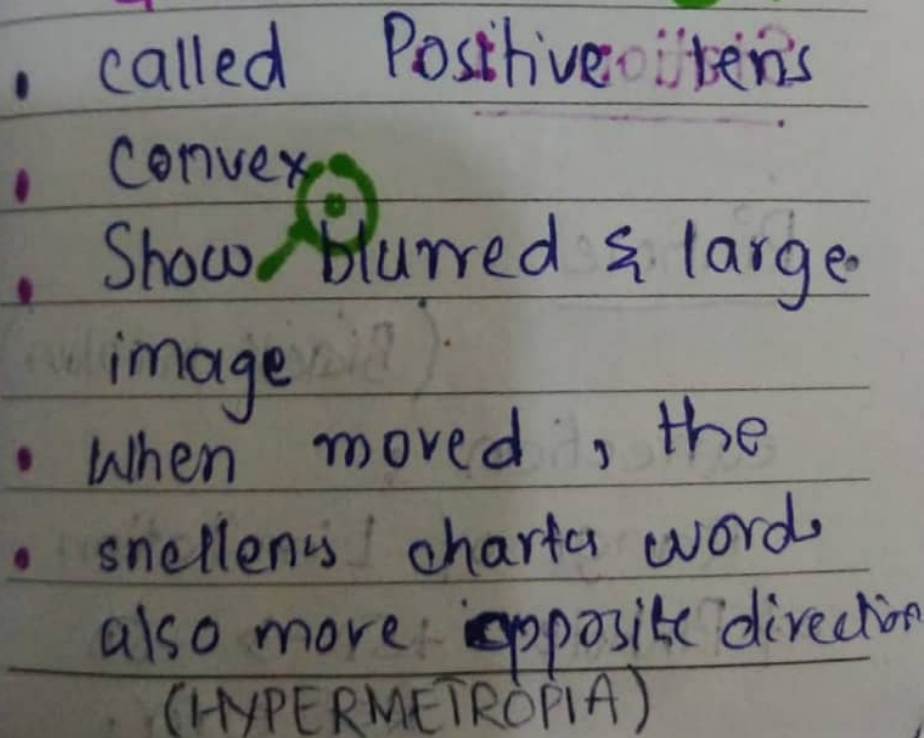 • called Positive lens
• Convex
• Show blurred & large
image
• When moved, the
• snellens charts words
also more opposite direction
(HYPERMETROPIA)